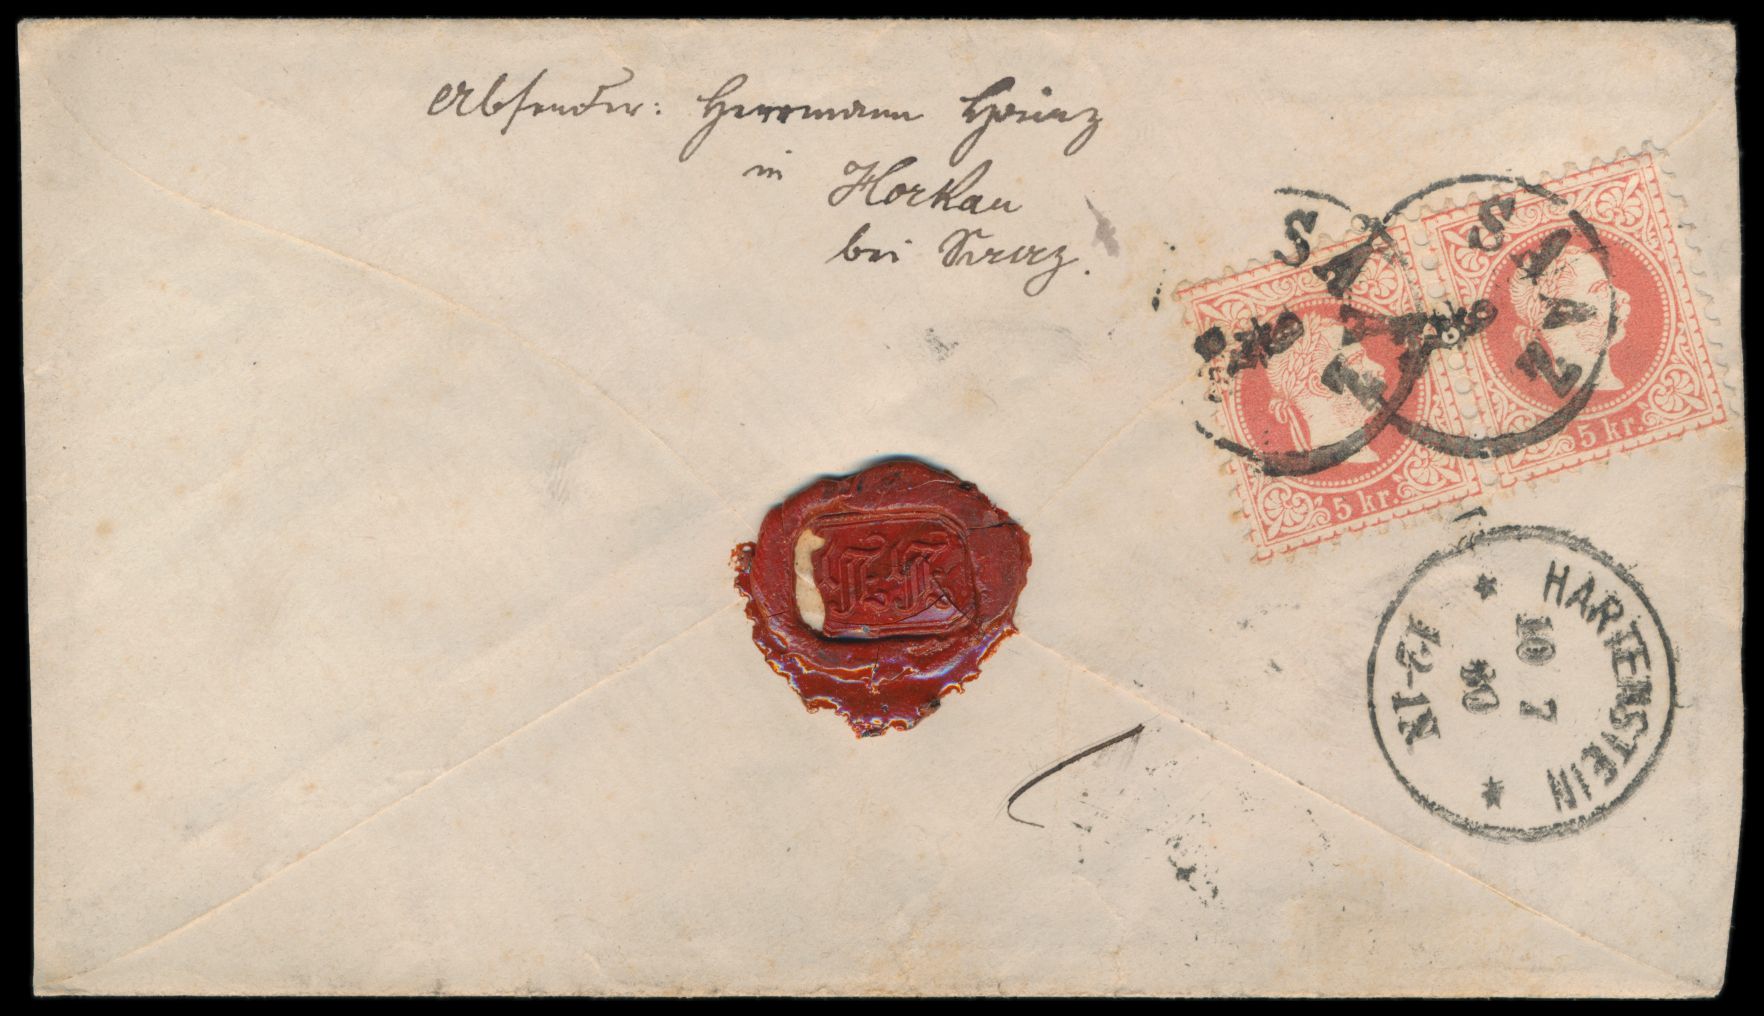 Absender: Herrmann Heinz
in Horkau
bei Saaz.
SAAZ
SAAZ
5 kr.
5 kr.
HARTENSTEIN
10 7
80
12-1N